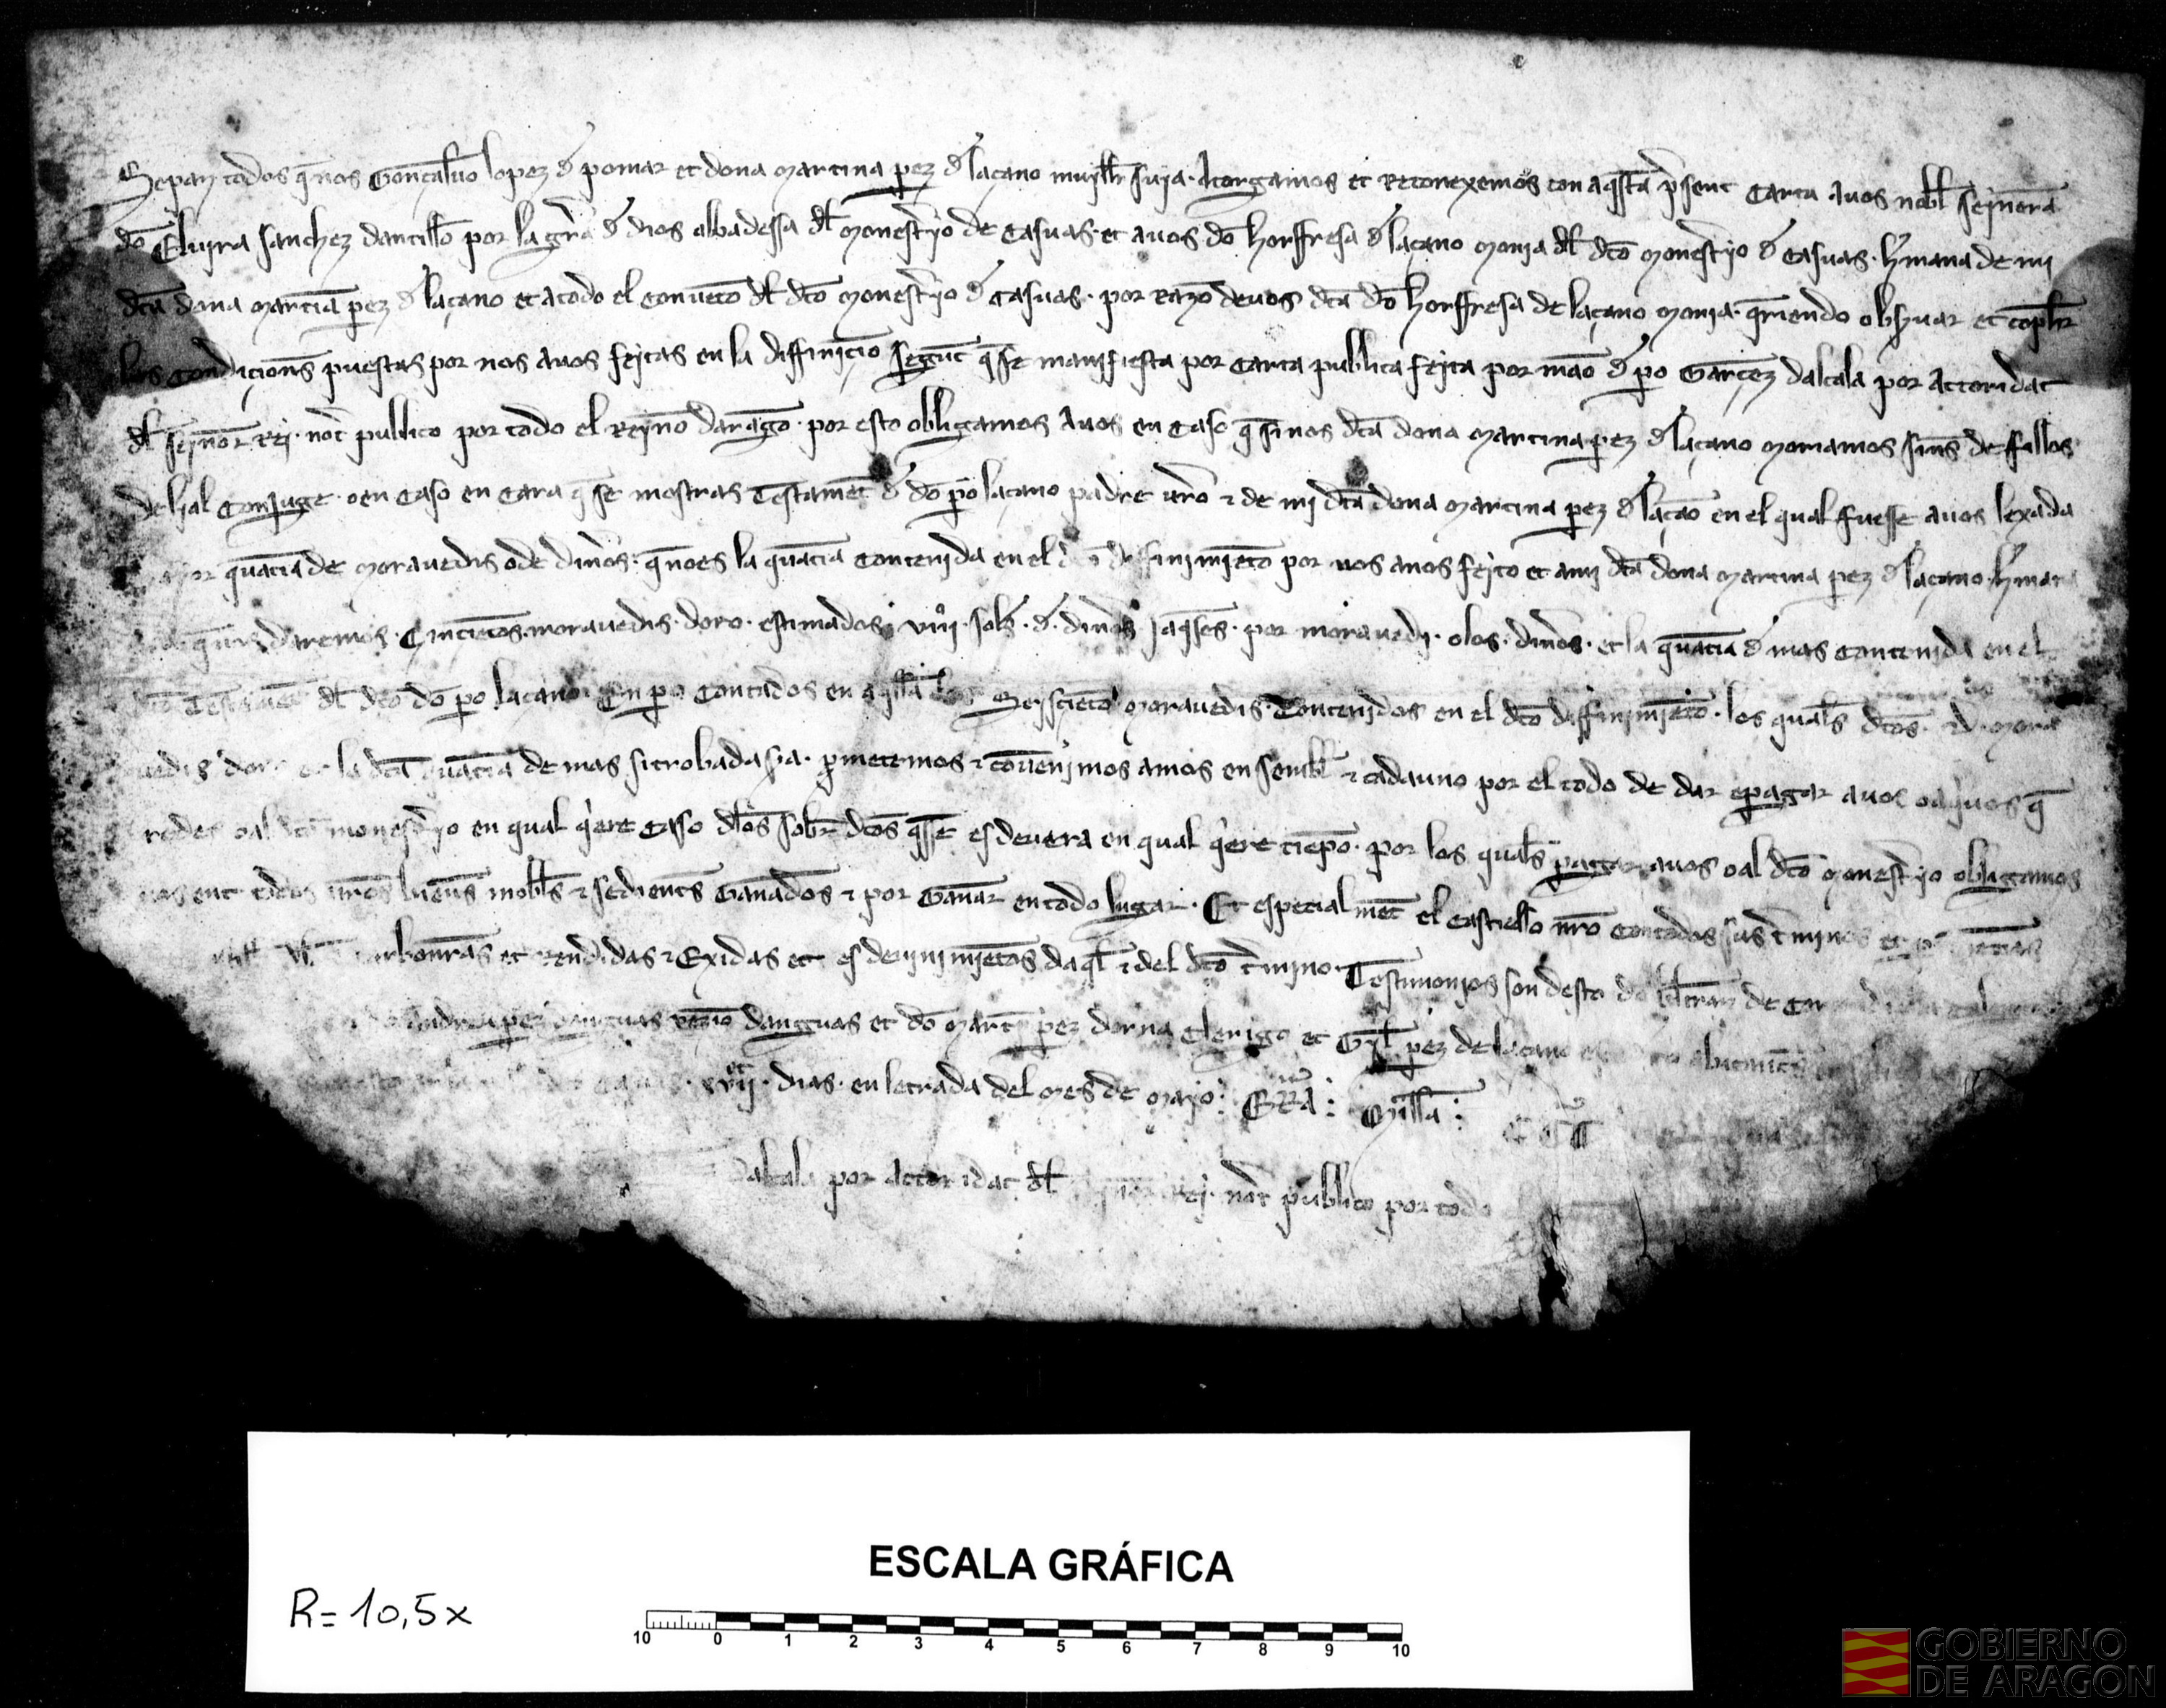 Sepan todos q̄ nos Goncalvuo lopez đ pomar et dona martina p̱ez đ laçano muyllr̄ suya · Atorgamos et Reconexemos con aq̄sta p̄sent Carta avos nobl̄ seynnora
dō Eluira sanchez dantillō por la gr̄a đ dios abbadessa dl̄ monest̄yo de Casuas · et auos dō horffresa đ laçano monia dl̄ dc̄o monest̄yo đ Casuas · h̄mana de mi
dc̄a dona martīa p̱ez đ laçano et a todo el Conuēto dl̄ dc̄o monest̄yo đ Casuas · por Razō deuos dc̄a dō horffresa de laçano monia · q̄riendo obs̄uar et cōplir
las Condicion̄s puestas por nos auos feytas en la diffiniciō següt q̄ se manifiesta por Carta publica feyta por māo đ p̱o Garcez dalcala por actoridat
dl̄ seynnor Rey · not̄ publico por todo el Reyno daragō · por esto obligamos Auos en Caso q̄ si nos dc̄a dona martina p̱ez đ laçano moriamos sin̄s de fillos
de lial Conjuge · o en Caso en Cara q̄ se mostras Testamēt đ dō p̱o laçano padre ur̄o ⁊ de mi dc̄a dona martina p̱ez đ laçāo en el qual fuesse auos lexada
q̄ntia de morauedis o de din̄os · q̄ no es la q̄ntia Contenida en el diffinimiēto por uos anos feyto et ami dc̄a dona martina p̱ez đ laçano · h̄mana
daremos · Cincietos · morauedis · doro · estimados · viij · sols̄ · đ · din̄os jaq̄ses · por morauedi · o los · din̄os · et la q̄ntia đ mas Contenida en el
Testamēt dl̄ dc̄o dō p̱o laçano · En p̱o Contados en aq̄lla los Seyscietos morauedis · Contenidos en el dc̄o diffinimiēto · los quals̄ dc̄os · d · mora
uedis doro et la dc̄a q̄ntia de mas si trobada sia · p̱metemos ⁊ conuenimos amos ensembl̄ ⁊ cadauno por el todo de dar e pagar auos o aq̄ uos q̄
redes o al dc̄o monest̄yo en qual q̄ere Caso dlos sobr̄ dc̄os q̄ sse esdeuera en qual q̄ere tiēpo · por los quals̄ pagar auos o al dc̄o monest̄yo obligamos
todos nr̄os bien̄s mobl̄s ⁊ sedient̄s Ganados ⁊ por Ganar en todo lugar · Et especialmēt el Castiello nr̄o con todos sus t̄minos et
et rendidas ⁊ Exidas et esdeuinimiētos daq̄l ⁊ del dc̄o t̄mino · Testimonios son desto dō bl̄tran de
p̱ez danguas vezīo danguas et dō mart̄ p̱ez dorna Clerigo et Gyl p̱ez de laçano
dias · en letrada del mes de mayo : ERA : Mīllā : CCC
dalcala por actoridat dl̄ Rey · not̄ publico por todo
ESCALA GRÁFICA
R= 10,5x
10 0 1 2 3 4 5 6 7 8 9 10
GOBIERNO
DE ARAGON